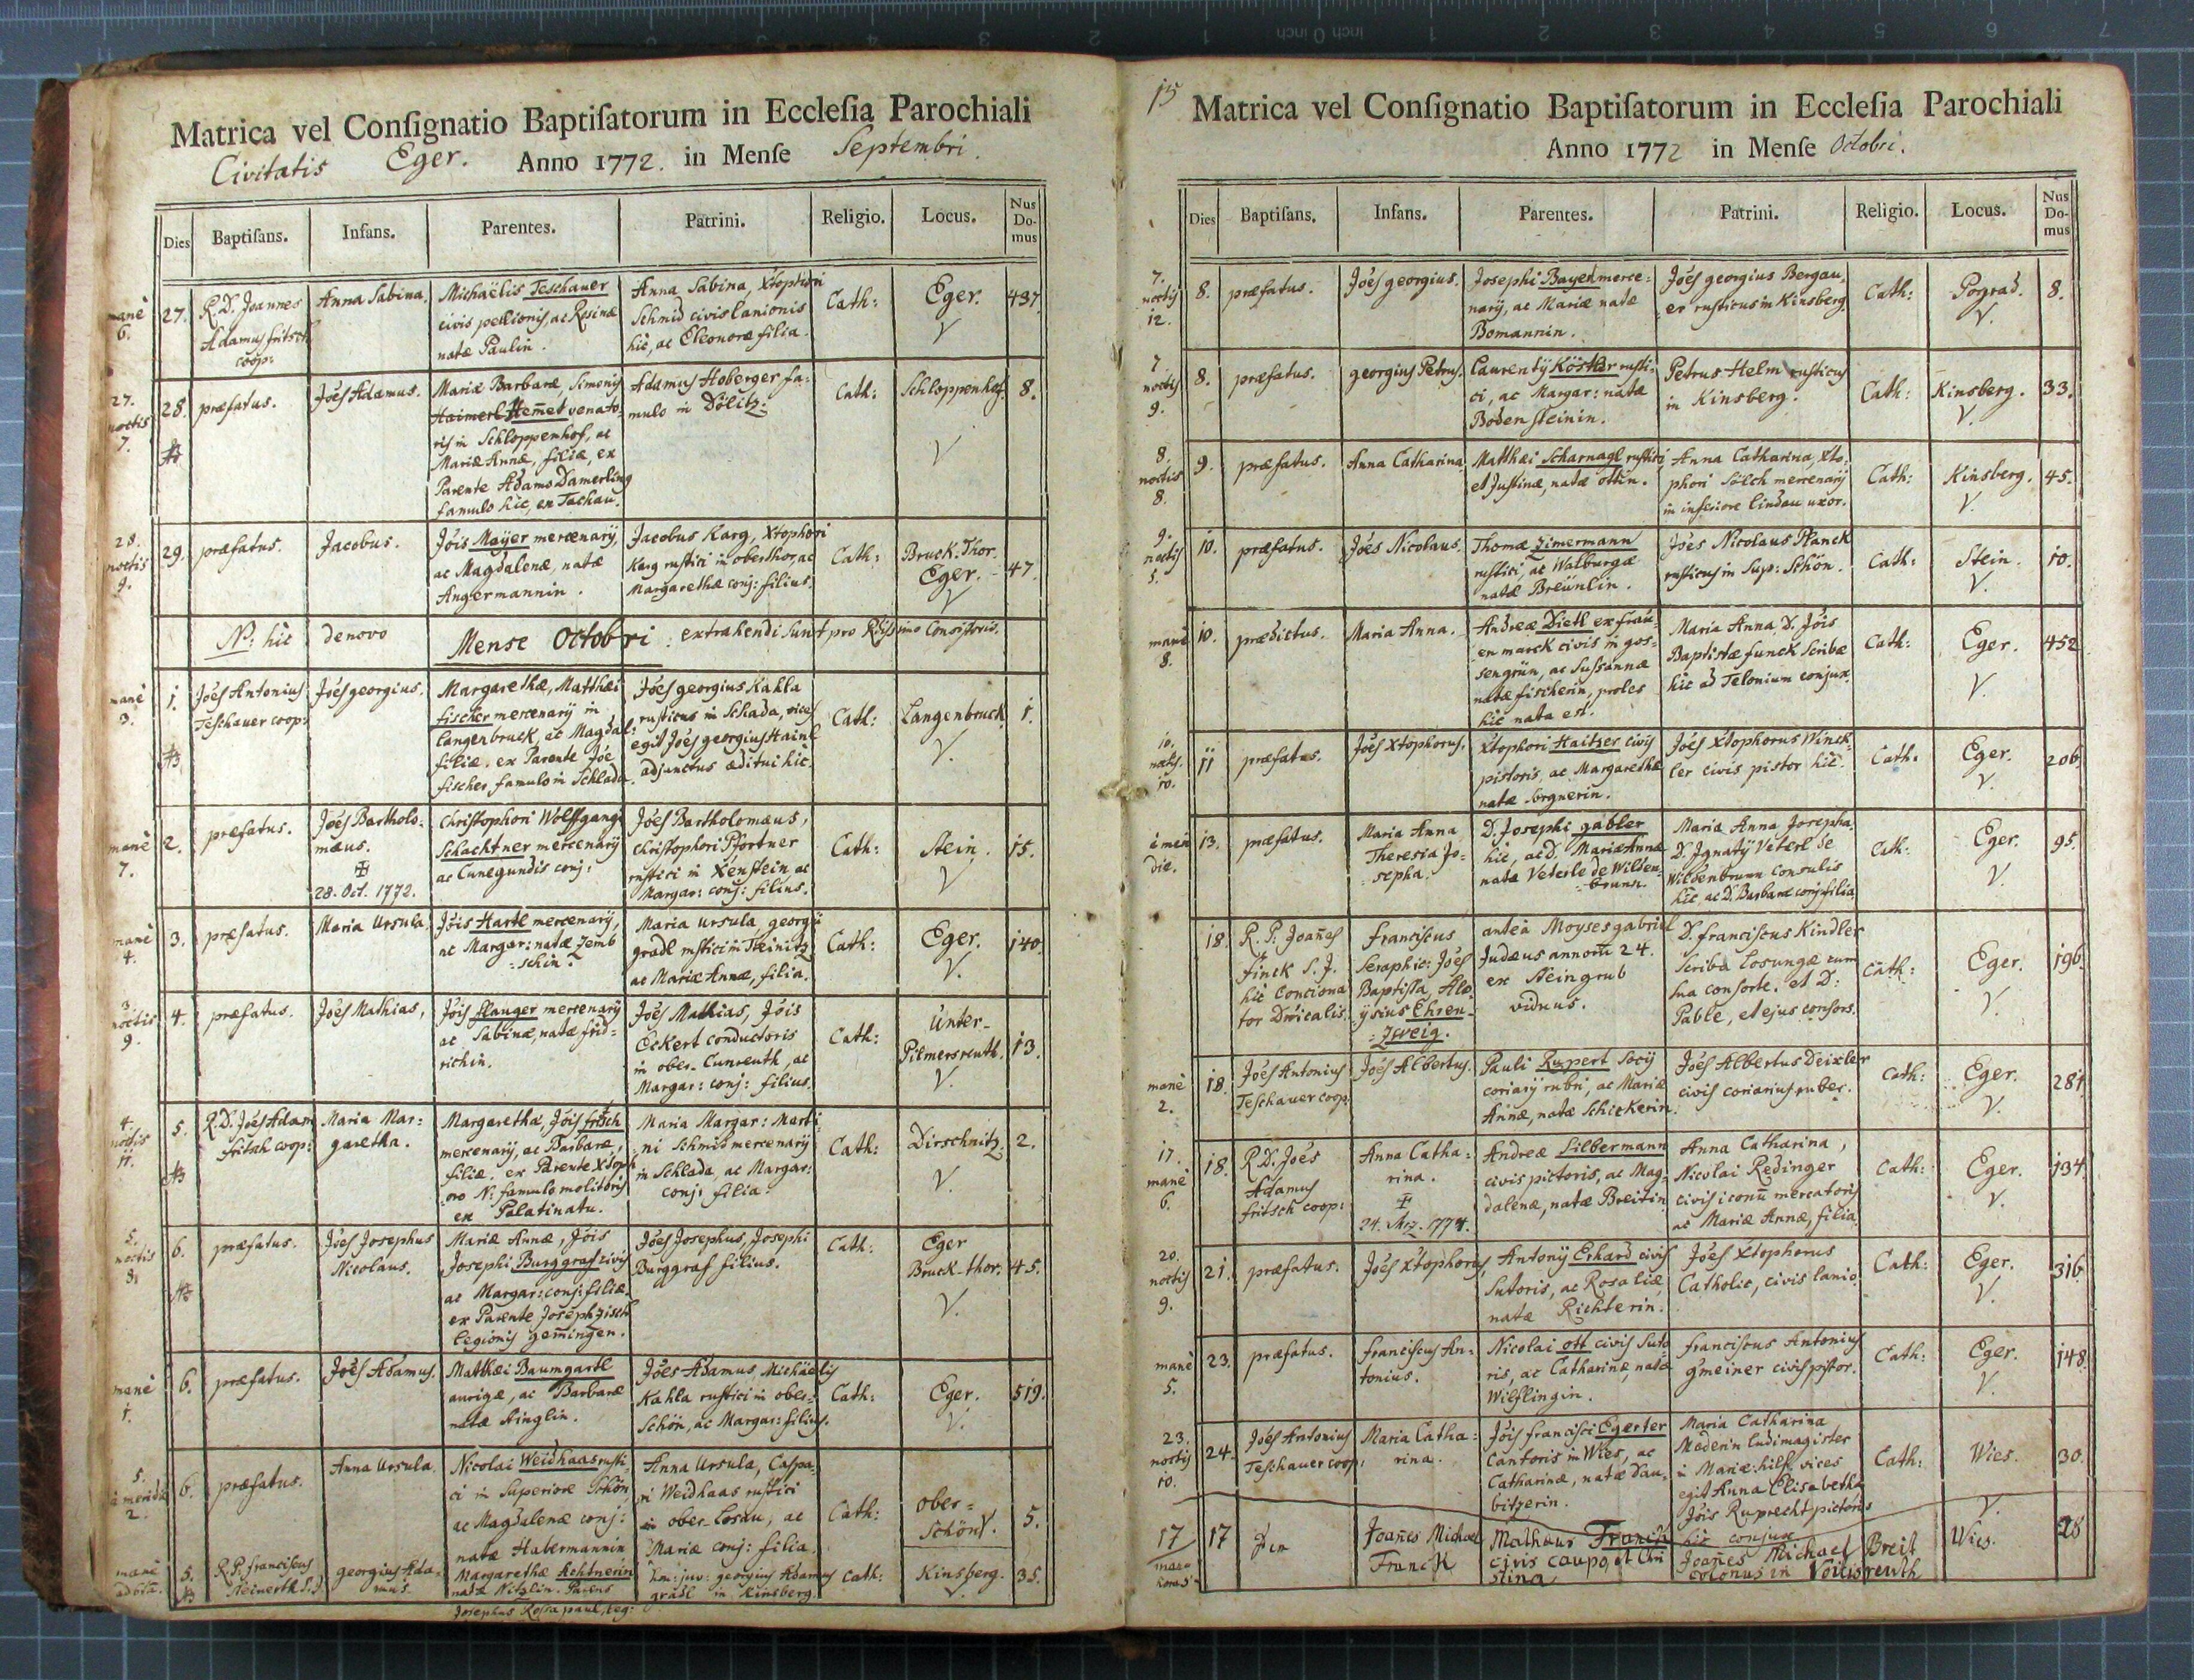 Matrica vel Consignatio Baptisatorum in Ecclesia Parochiali
Civitatis Eger. Anno 1772. in Mense Septembri.
Dies Baptisans. Infans. Parentes. Patrini. Religio. Locus. Nus Do-mus
manè 6. 27. R.D. Joannes Adamus fritsch coop:
Anna Sabina.
Michaëlis Teschauer
civis pellionis, ac Rosinæ
natæ Paulin.
Anna Sabina, Xtophori
Schmid civis lanionis
hic, ac Eleonoræ filia.
Cath: Eger. V 437.
27. noctis 7. 28. præfatus. Joës Adamus.
Mariæ Barbaræ, Simonis
Haimerl Hemet venato-
ris in Schloppenhof, ac
Mariæ Annæ, filiæ, ex
Parente Adamo Damerling
famulo hic, ex Tachau.
Adamus Hoberger fa:
mulo in Dölitz:
Cath: Schloppenhof. V 8.
28. noctis 9. 29. præfatus. Jacobus.
Jöis Mayer mercenarÿ,
ac Magdalenæ, natæ
Angermannin.
Jacobus Karg, Xtophori
Karg rustici in oberthor, ac
Margarethæ conj: filius.
Cath: Bruck-Thor. Eger. V 47.
NB: hic denovo Mense Octobri extrahendi sunt pro Rssimo Consistorio.
manè 3. 1. Joës Antonius Teschauer coop:
Joës georgius.
Margarethæ, Matthæi
fischer mercenarÿ in
Langenbruck, et Magdal:
filiæ, ex Parente Joë
fischer, famulo in Schlada.
Joës georgius Kahla
rusticus in Schada, vices
egit Joës georgius Hainl
adjunctus æditui hic.
Cath: Langenbruck. V. 1.
manè 7. 2. præfatus.
Joës Bartholo-
mæus.
28. Oct. 1772.
Christophori Wolffgangi
Schachtner mercenarÿ
ac Cunegundis conj:
Joës Bartholomæus,
Christophori Pfortner
rustici in Xenstein, ac
Margar: conj: filius.
Cath: Stein. V 15.
manè 4. 3. præfatus. Maria Ursula
Jöis Hartl mercenarÿ,
ac Margar: natæ Zemb
schin.
Maria Ursula georgÿ
gradl rustici in Treinitz,
ac Mariæ Annæ, filia.
Cath: Eger. V. 140.
3. noctis 9. 4. præfatus. Joës Mathias,
Jöis Planger mercenarÿ
ac Sabinæ, natæ frid-
richin.
Joës Mathias, Jöis
Eckert conductoris
in ober-Cunreuth, ac
Margar: conj: filius.
Cath: Unter-Pilmersreuth. V. 13.
4. noctis 11. 5. R.D. Joës Adam fritsch coop:
Maria Mar:
garetha.
Margaretha, Jöis fritsch
mercenarÿ, ac Barbaræ,
filiæ, ex Parente Xtoph
oro N: famulo molitoris
ex Palatinatu.
Maria Margar: Marti
ni Schmid mercenarÿ
in Schlada, ac Margar:
conj: filia.
Cath: Dirschnitz. V. 2.
5. noctis 8. 6. præfatus.
Joës Josephus
Nicolaus.
Mariæ Annæ, Jöis
Josephi Burggraf civis
ac Margar: conj: filiæ,
ex Parente Joseph Zisch
legionis gemingen.
Joës Josephus, Josephi
Burggraf filius.
Cath: Eger Bruck-thor. V. 45.
manè 1. 6. præfatus. Joës Adamus.
Matthæi Baumgartl
aurigæ, ac Barbaræ
natæ Stinglin.
Joës Adamus Michäelis
Kahla rustici in ober-
Schön, ac Margar: filius.
Cath: Eger. V. 519.
5. à meridie 2. 6. præfatus. Anna Ursula.
Nicolai Weidhaas rusti-
ci in Superiore Schön
ac Magdalenæ conj:
natæ Habermannin
Anna Ursula, Caspa-
ri Weidhaas rustici
in ober-Losau, ac
Mariæ conj: filia.
Cath: ober-Schön. V. 5.
manè 5. R.P. franciscus Reinertk S.J.
georgius Ada-
mus.
Margarethæ Kehtnerin
natæ Nitzlin. Parens
Josephus Rosra paul, leg:
hon: juv: georgius Adamus
grädl in Kinsberg.
Cath: Kinsberg. V. 35.
15
Matrica vel Consignatio Baptisatorum in Ecclesia Parochiali
Anno 1772 in Mense Octobri.
Dies Baptisans. Infans. Parentes. Patrini. Religio. Locus. Nus Do-mus
7. noctis 12. 8. præfatus. Joës georgius.
Josephi Bayer merce:
narÿ, ac Mariæ natæ
Bomannin.
Joës georgius Bergau-
er rusticus in Kinsberg.
Cath: Pograd. V. 8.
7 noctis 9. 8. præfatus. georgius Petrus.
Laurentÿ Köstler rusti-
ci, ac Margar: natæ
Bodensteinin.
Petrus Helm rusticus
in Kinsberg.
Cath: Kinsberg. V. 33.
8. noctis 8. 9. præfatus. Anna Catharina.
Matthæi Scharnagl rustici
et Justinæ, natæ ottin.
Anna Catharina, Xto-
phori Sölch mercenarÿ
in inferiore Lindau uxor.
Cath: Kinsberg. V. 45.
9. noctis 5. 10. præfatus. Joës Nicolaus.
Thomæ Zimermann
rustici, ac Walburgæ
natæ Breünlin.
Joës Nicolaus Planck
rusticus in Sup: Schön.
Cath: Stein. V. 10.
manè 8. 10. prædictus. Maria Anna.
Andreæ Dietl ex frau-
en marck civis in gos-
sengrün, ac Sussannæ
natæ fischerin, proles
hic nata est.
Maria Anna D. Jöis
Baptistæ funck Scribæ
hic ad Telonium conjux.
Cath: Eger. V. 452
10. noctis. 10. 11 præfatus. Joës Xtophorus.
Xtophori Haitzer civis
pistoris, ac Margarethæ
natæ Sorgnerin.
Joës Xtophorus Winck-
ler civis pistor hic.
Cath: Eger. V. 206.
à meri die. 13. præfatus.
Maria Anna
Theresia Jo-
sepha.
D. Josephi gabler
hic, ac D. Mariæ Annæ
natæ Veterle de Wilden-
brunn.
Maria Anna Josepha,
D. Ignatÿ Veterl de
Wildenbrunn Consulis
hic ac D. Barbaræ conj: filia.
Cath: Eger. V. 95.
18. R.P. Joañes Finck S.J. hic Conciona tor Dnicalis.
franciscus
Seraphic: Joës
Baptista, Alo-
ÿsius Ehren-
zweig.
anteà Moyses gabriel
Judæus annorum 24.
ex Steingrub
viduus.
D. franciscus Kindler
Scriba Losungæ cum
sua consorte, et D:
Pable, et ejus consors.
Cath: Eger. V. 196.
manè 2. 18. Joës Antonius Teschauer coop.
Joës Albertus.
Pauli Rupert Socÿ
coriarÿ rubri, ac Mariæ
Annæ, natæ Schickerin.
Joës Albertus Deixler
civis coriarius ruber.
Cath: Eger. V. 281.
17. manè 6. 18. R.D. Joës Adamus fritsch coop:
Anna Catha:
rina.
24. Mrz. 1774.
Andreæ Lilbermann
civis pictoris, ac Mag-
dalenæ, natæ Breitin.
Anna Catharina,
Nicolai Redinger
civis iconum mercatoris
ac Mariæ Annæ, filia.
Cath: Eger. V. 134.
20. noctis 9. 21. præfatus. Joës Xtophorus,
Antonÿ Erhard civis
Sutoris, ac Rosaliæ,
natæ Richterin.
Joës Xtophorus
Catholic, civis lanio.
Cath: Eger. V. 316.
manè 5. 23. præfatus.
franciscus An-
tonius.
Nicolai ott civis Suto
ris, ac Catharinæ, natæ
Wilflingin.
franciscus Antonius
gmeiner civis pistor.
Cath: Eger. V. 148.
23. noctis 10. 24. Joës Antonius Teschauer coop.
Maria Catha:
rina.
Jöis francisci Egerter
Cantoris in Wies, ac
Catharinæ, natæ Dau-
bitzerin.
Maria Catharina
Mederin ludimagister
in Mariæ-hilf, vices
egit Anna Elisabetha
Jöis Ruprecht pictoris
hic conjux
Cath: Wies. V. 30.
17 17
Joañes Michael
Franck
Matheus Franck
civis caupo, et Chri
stina
Joañes Michael Breit
colonus in Voitisreuth
Wies. 28